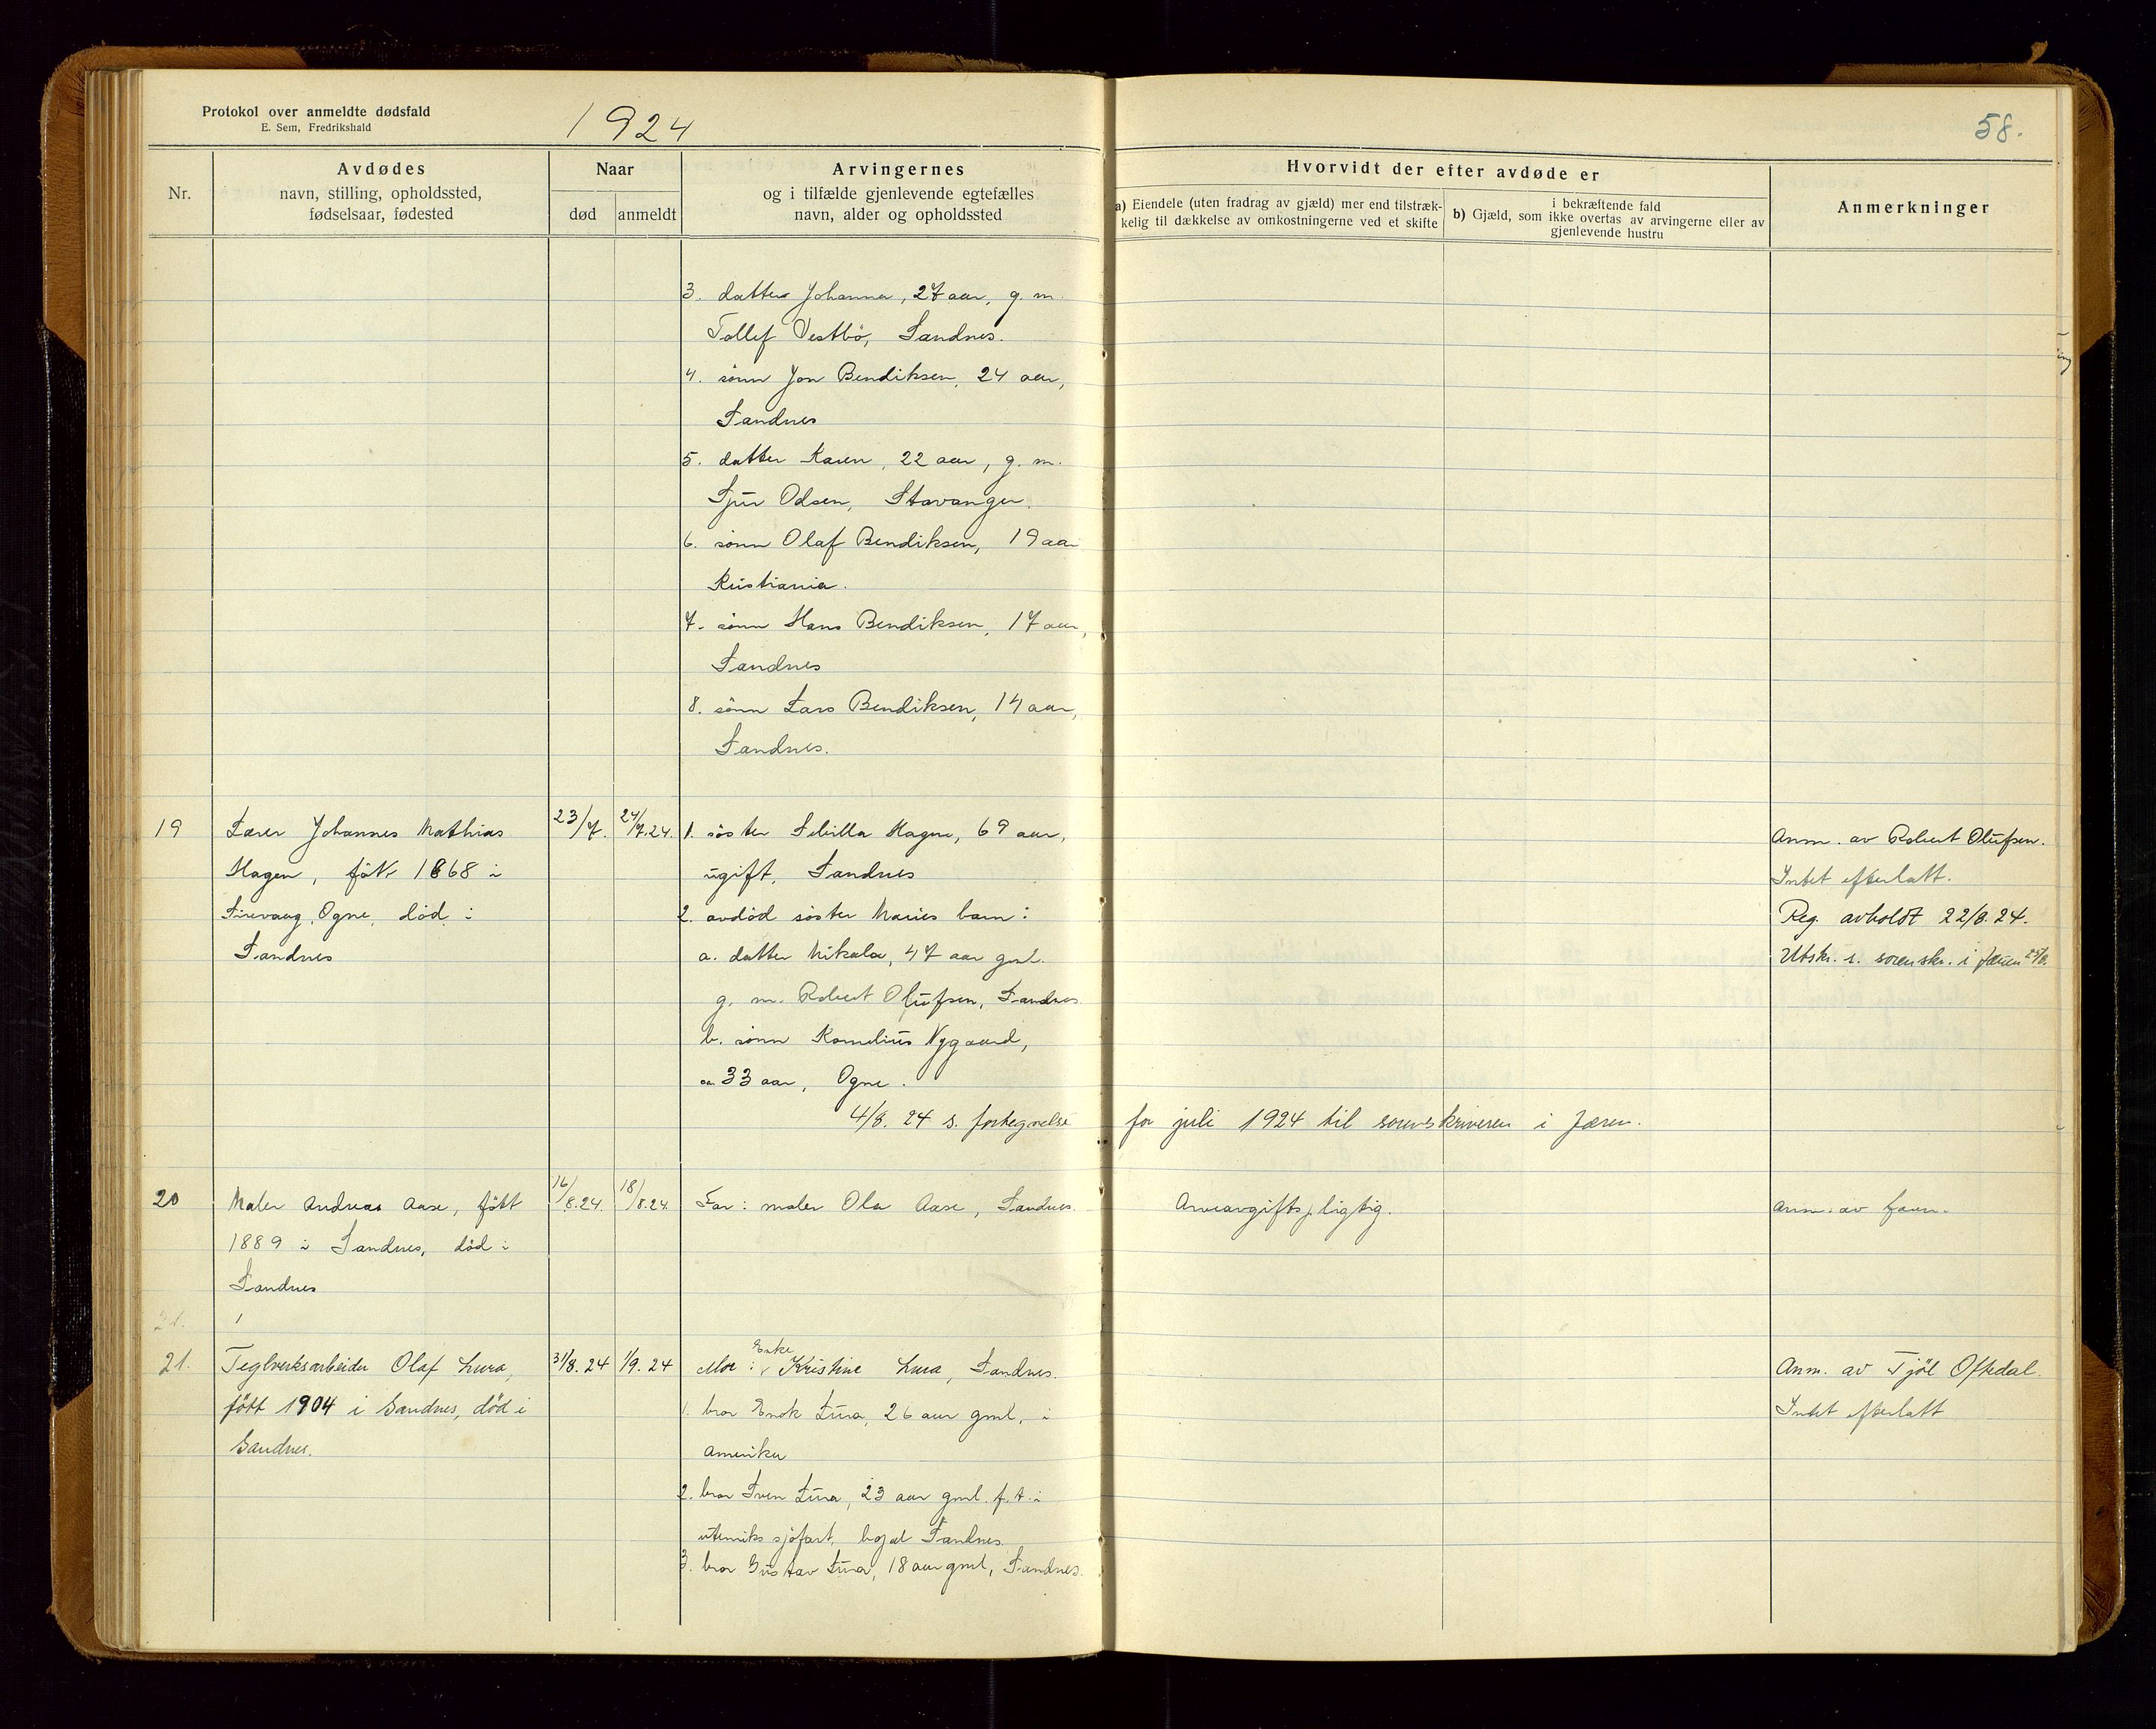 Protokol over anmeldte dødsfald
E. Sem, Fredrikshald
1924
58.
Nr.
Avdødes
navn, stilling, opholdssted,
fødselsaar, fødested
Naar
død
anmeldt
Arvingernes
og i tilfælde gjenlevende egtefælles
navn, alder og opholdssted
Hvorvidt der efter avdøde er
a) Eiendele (uten fradrag av gjæld) mer end tilstræk-
kelig til dækkelse av omkostningerne ved et skifte
i bekræftende fald
b) Gjæld, som ikke overtas av arvingerne eller av
gjenlevende hustru
Anmerkninger
3. datter Johanna, 27 aar, g. m.
Tollef Vestbö, Sandnes.
4. sönn Jon Bendiksen, 24 aar,
Sandnes
5. datter Karen, 22 aar, g. m.
Odsen, Stavanger.
6. sönn Olaf Bendiksen, 19 aar
Kristiania.
7. sönn Hans Bendiksen, 17 aar,
Sandnes
8. sönn Lars Bendiksen, 14 aar,
Sandnes.
19
Lærer Johannes Mathias
Hagen, født 1868 i
Sirevaag, Ogne, död i
Sandnes
23/7.
24/7.24.
1. söster Hagen, 69 aar,
ugift, Sandnes
2. avdöd söster Maries barn:
a. datter Nikala, 47 aar gml.
g. m. Robert Olufsen, Sandnes
b. sönn Kornelius Nygaard,
ca. 33 aar, Ogne.
Anm. av Robert Olufsen.
Intet efterlatt.
Reg. avholdt 22/8. 24.
Utskr. s. sorenskr. i Jæren 25/8.
4/8. 24 s. fortegnelse for juli 1924 til sorenskriveren i Jæren.
20
Maler Andreas Aase, født
1889 i Sandnes, död i
Sandnes
16/8.24.
18/8.24.
Far: maler Ola Aase, Sandnes.
Arveavgiftspligtig.
Anm. av faren.
21.
21.
Teglverksarbeider Olaf Lura,
født 1904 i Sandnes, död i
Sandnes.
31/8. 24
1/9. 24
Enke
Mor: Kristine Lura, Sandnes.
1. bror Enok Lura, 26 aar gml, i
Amerika
2. bror Sven Lura, 23 aar gml. f. t. i
utenriks sjöfart, Sandnes.
3. bror Gustav Lura, 18 aar gml, Sandnes.
Anm. av Oftedal.
Intet efterlatt